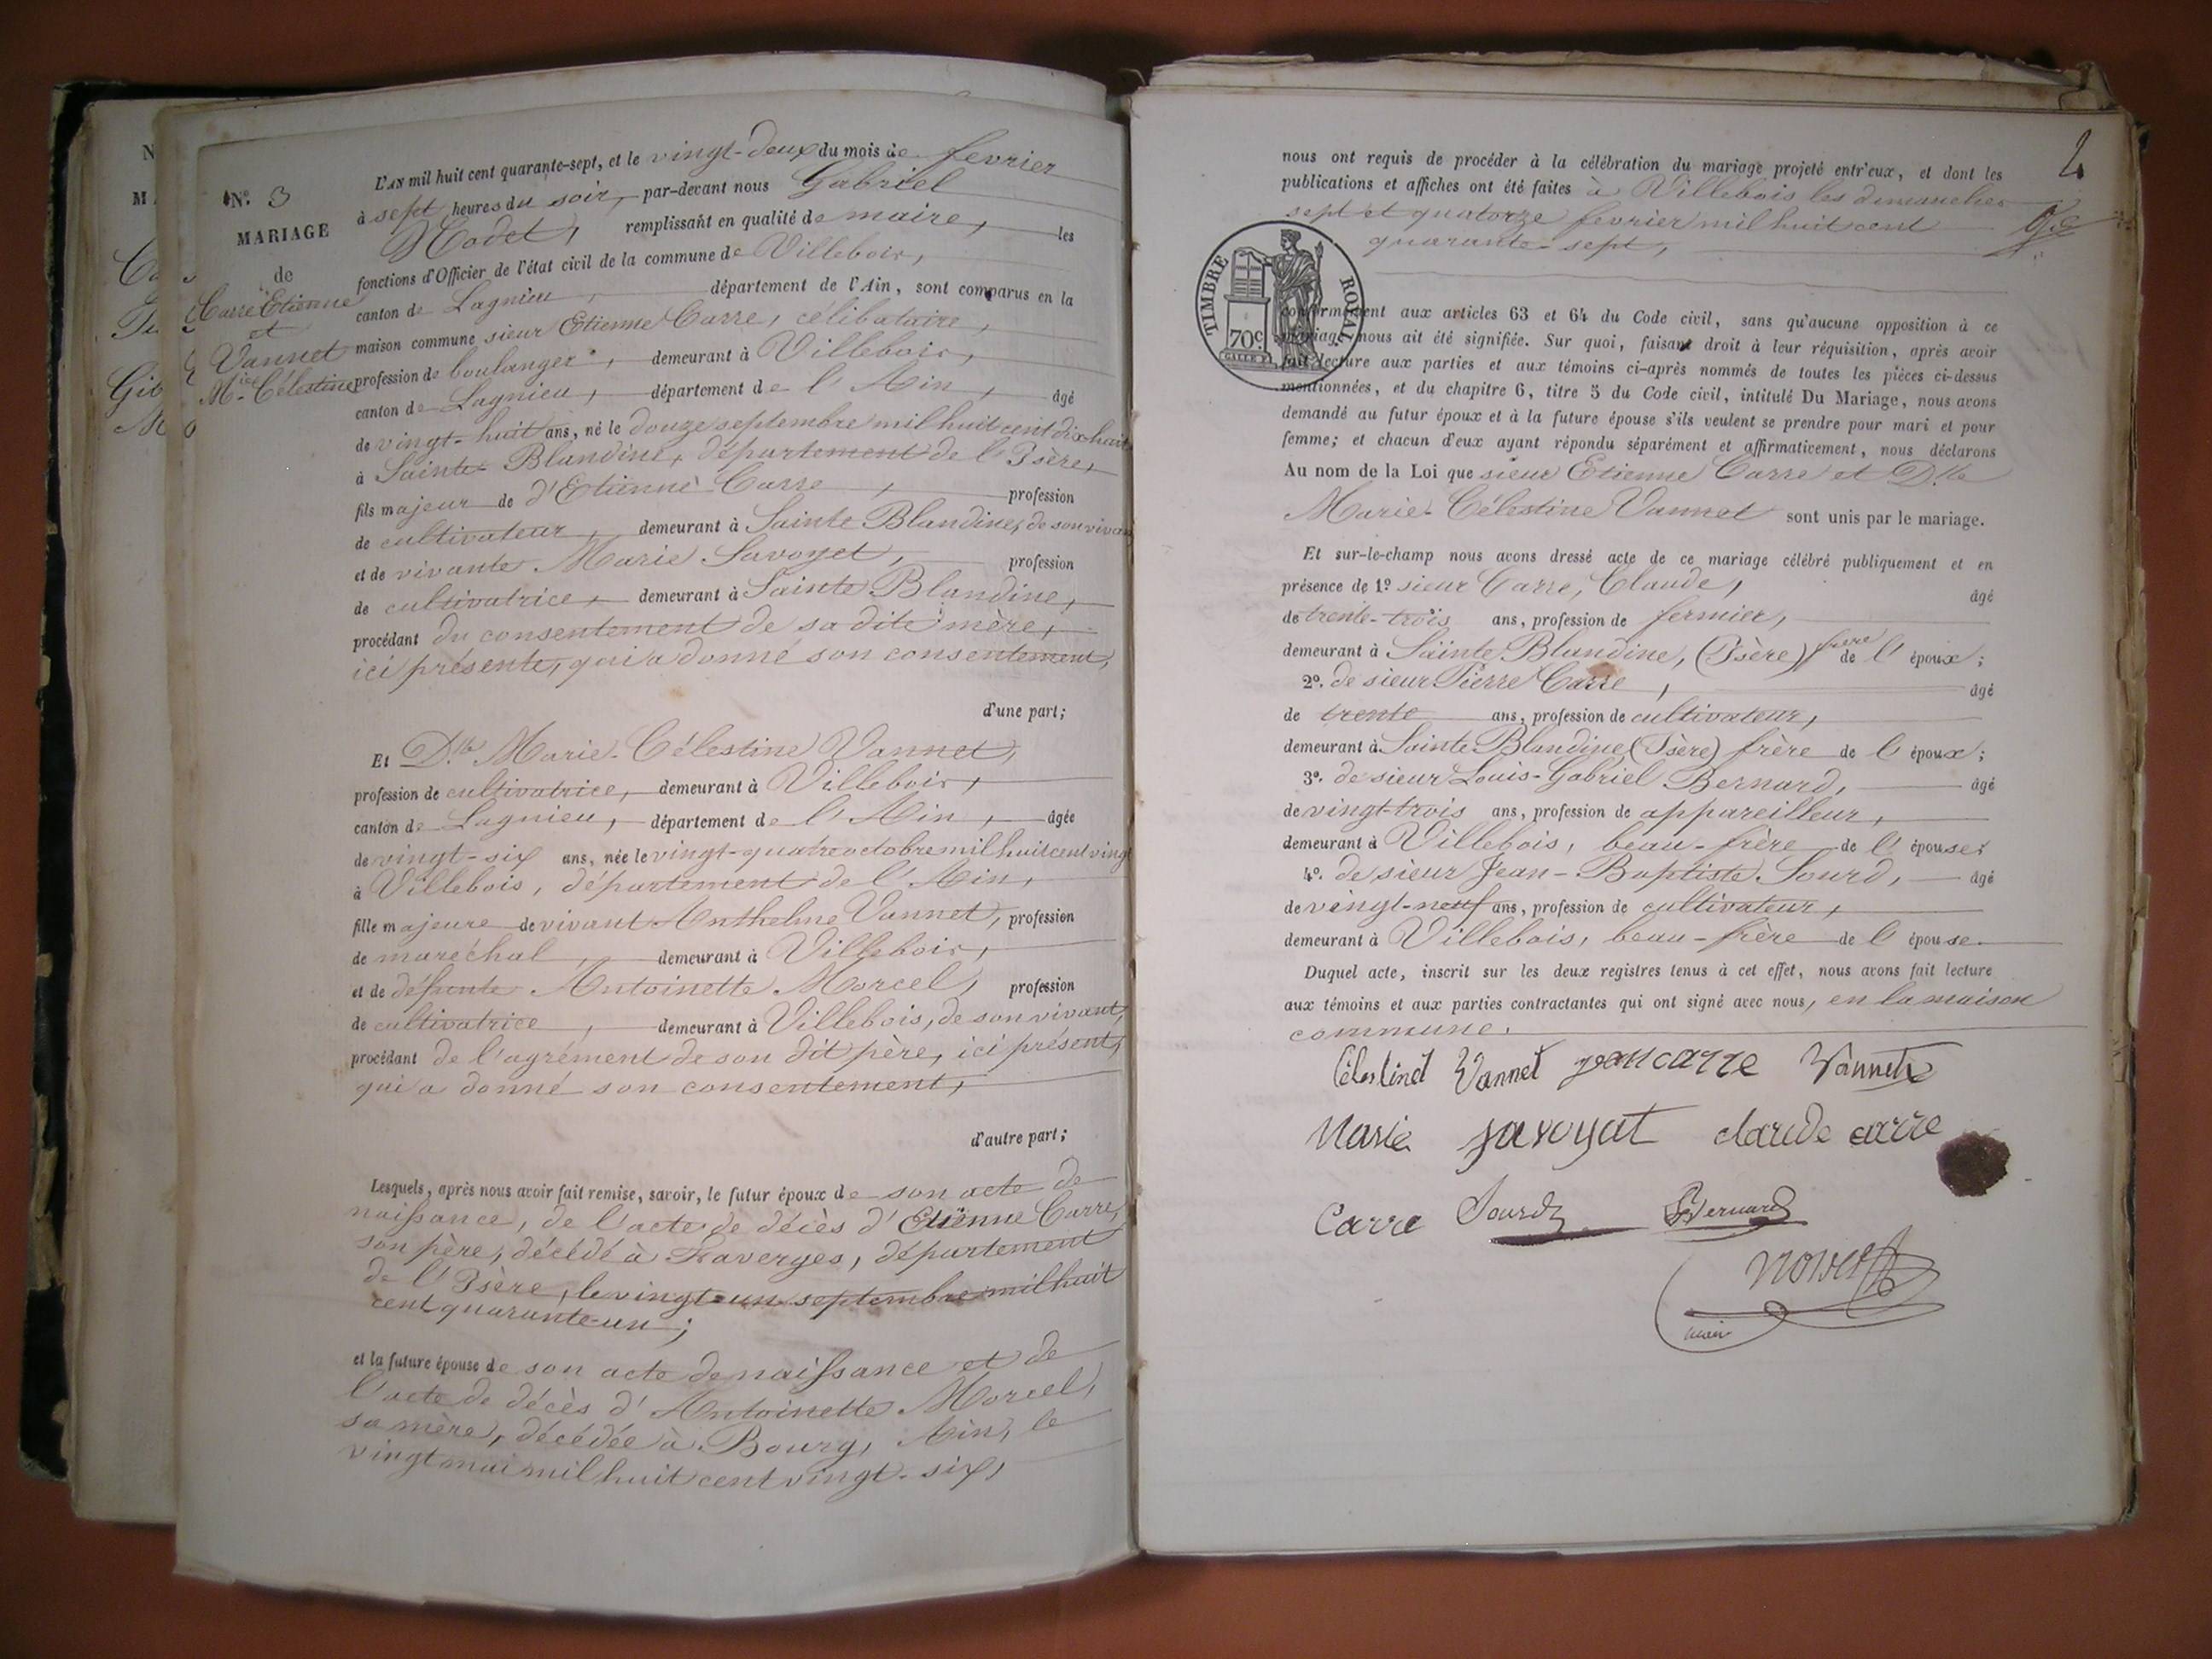 N° 3
MARIAGE
de
Carre Etienne
et
Vannet
M.ie Célestine
L'AN mil huit cent quarante-sept, et le vingt-deux du mois de fevrier
à sept heures du soir, par-devant nous Gabriel
Nodet, remplissant en qualité de maire, les
fonctions d'Officier de l'état civil de la commune de Villebois,
canton de Lagnieu, département de l'Ain, sont comparus en la
maison commune sieur Etienne Carre, célibataire,
profession de boulanger, demeurant à Villebois,
canton de Lagnieu, département de l'Ain, âgé
de vingt-huit ans, né le douze septembre mil huit cent dix-huit
à Sainte Blandine, département de l'Isère,
fils majeur de d'Etienne Carre, profession
de cultivateur, demeurant à Sainte Blandine, de son vivant
et de vivante Marie Savoyet, profession
de cultivatrice, demeurant à Sainte Blandine,
procédant du consentement de sa dite mère,
ici présente, qui a donné son consentement,
d'une part;
Et D.lle Marie-Célestine Vannet,
profession de cultivatrice, demeurant à Villebois,
canton de Lagnieu, département de l'Ain, âgée
de vingt-six ans, née le vingt-quatre octobre mil huit cent vingt
à Villebois, département de l'Ain,
fille majeure de vivant Anthelme Vannet, profession
de maréchal, demeurant à Villebois,
et de défunte Antoinette Morcel, profession
de cultivatrice, demeurant à Villebois, de son vivant,
procédant de l'agrément de son dit père, ici présent,
qui a donné son consentement,
d'autre part;
Lesquels, après nous avoir fait remise, savoir, le futur époux de son acte de
naissance, de l'acte de décès d'Etienne Carre,
son père, décédé à Faverges, département
de l'Isère, le vingt-un septembre mil huit
cent quarante-un;
et la future épouse de son acte de naissance et de
l'acte de décès d'Antoinette Morcel,
sa mère, décédée à Bourg, Ain, le
vingt mai mil huit cent vingt-six,
2
nous ont requis de procéder à la célébration du mariage projeté entr'eux, et dont les
publications et affiches ont été faites à Villebois les dimanches
sept et quatorze fevrier mil huit cent
quarante-sept,
TIMBRE ROYAL
70c
conformément aux articles 63 et 64 du Code civil, sans qu'aucune opposition à ce
mariage nous ait été signifiée. Sur quoi, faisant droit à leur réquisition, après avoir
fait lecture aux parties et aux témoins ci-après nommés de toutes les pièces ci-dessus
mentionnées, et du chapitre 6, titre 5 du Code civil, intitulé Du Mariage, nous avons
demandé au futur époux et à la future épouse s'ils veulent se prendre pour mari et pour
femme; et chacun d'eux ayant répondu séparément et affirmativement, nous déclarons
Au nom de la Loi que sieur Etienne Carre et D.lle
Marie-Célestine Vannet sont unis par le mariage.
Et sur-le-champ nous avons dressé acte de ce mariage célébré publiquement et en
présence de 1° sieur Carre, Claude, âgé
de trente-trois ans, profession de fermier,
demeurant à Sainte Blandine, (Isère) frere de l'époux;
2° de sieur Pierre Carre, âgé
de trente ans, profession de cultivateur,
demeurant à Sainte Blandine (Isère) frère de l'époux;
3° de sieur Louis-Gabriel Bernard, âgé
de vingt-trois ans, profession de appareilleur,
demeurant à Villebois, beau-frère de l'épouse;
4° de sieur Jean-Baptiste Sourd, âgé
de vingt-neuf ans, profession de cultivateur,
demeurant à Villebois, beau-frère de l'épouse.
Duquel acte, inscrit sur les deux registres tenus à cet effet, nous avons fait lecture
aux témoins et aux parties contractantes qui ont signé avec nous, en la maison
commune.
Vannet carre Vannet
Marie savoyat claude carre
Carre Sourd Bernard